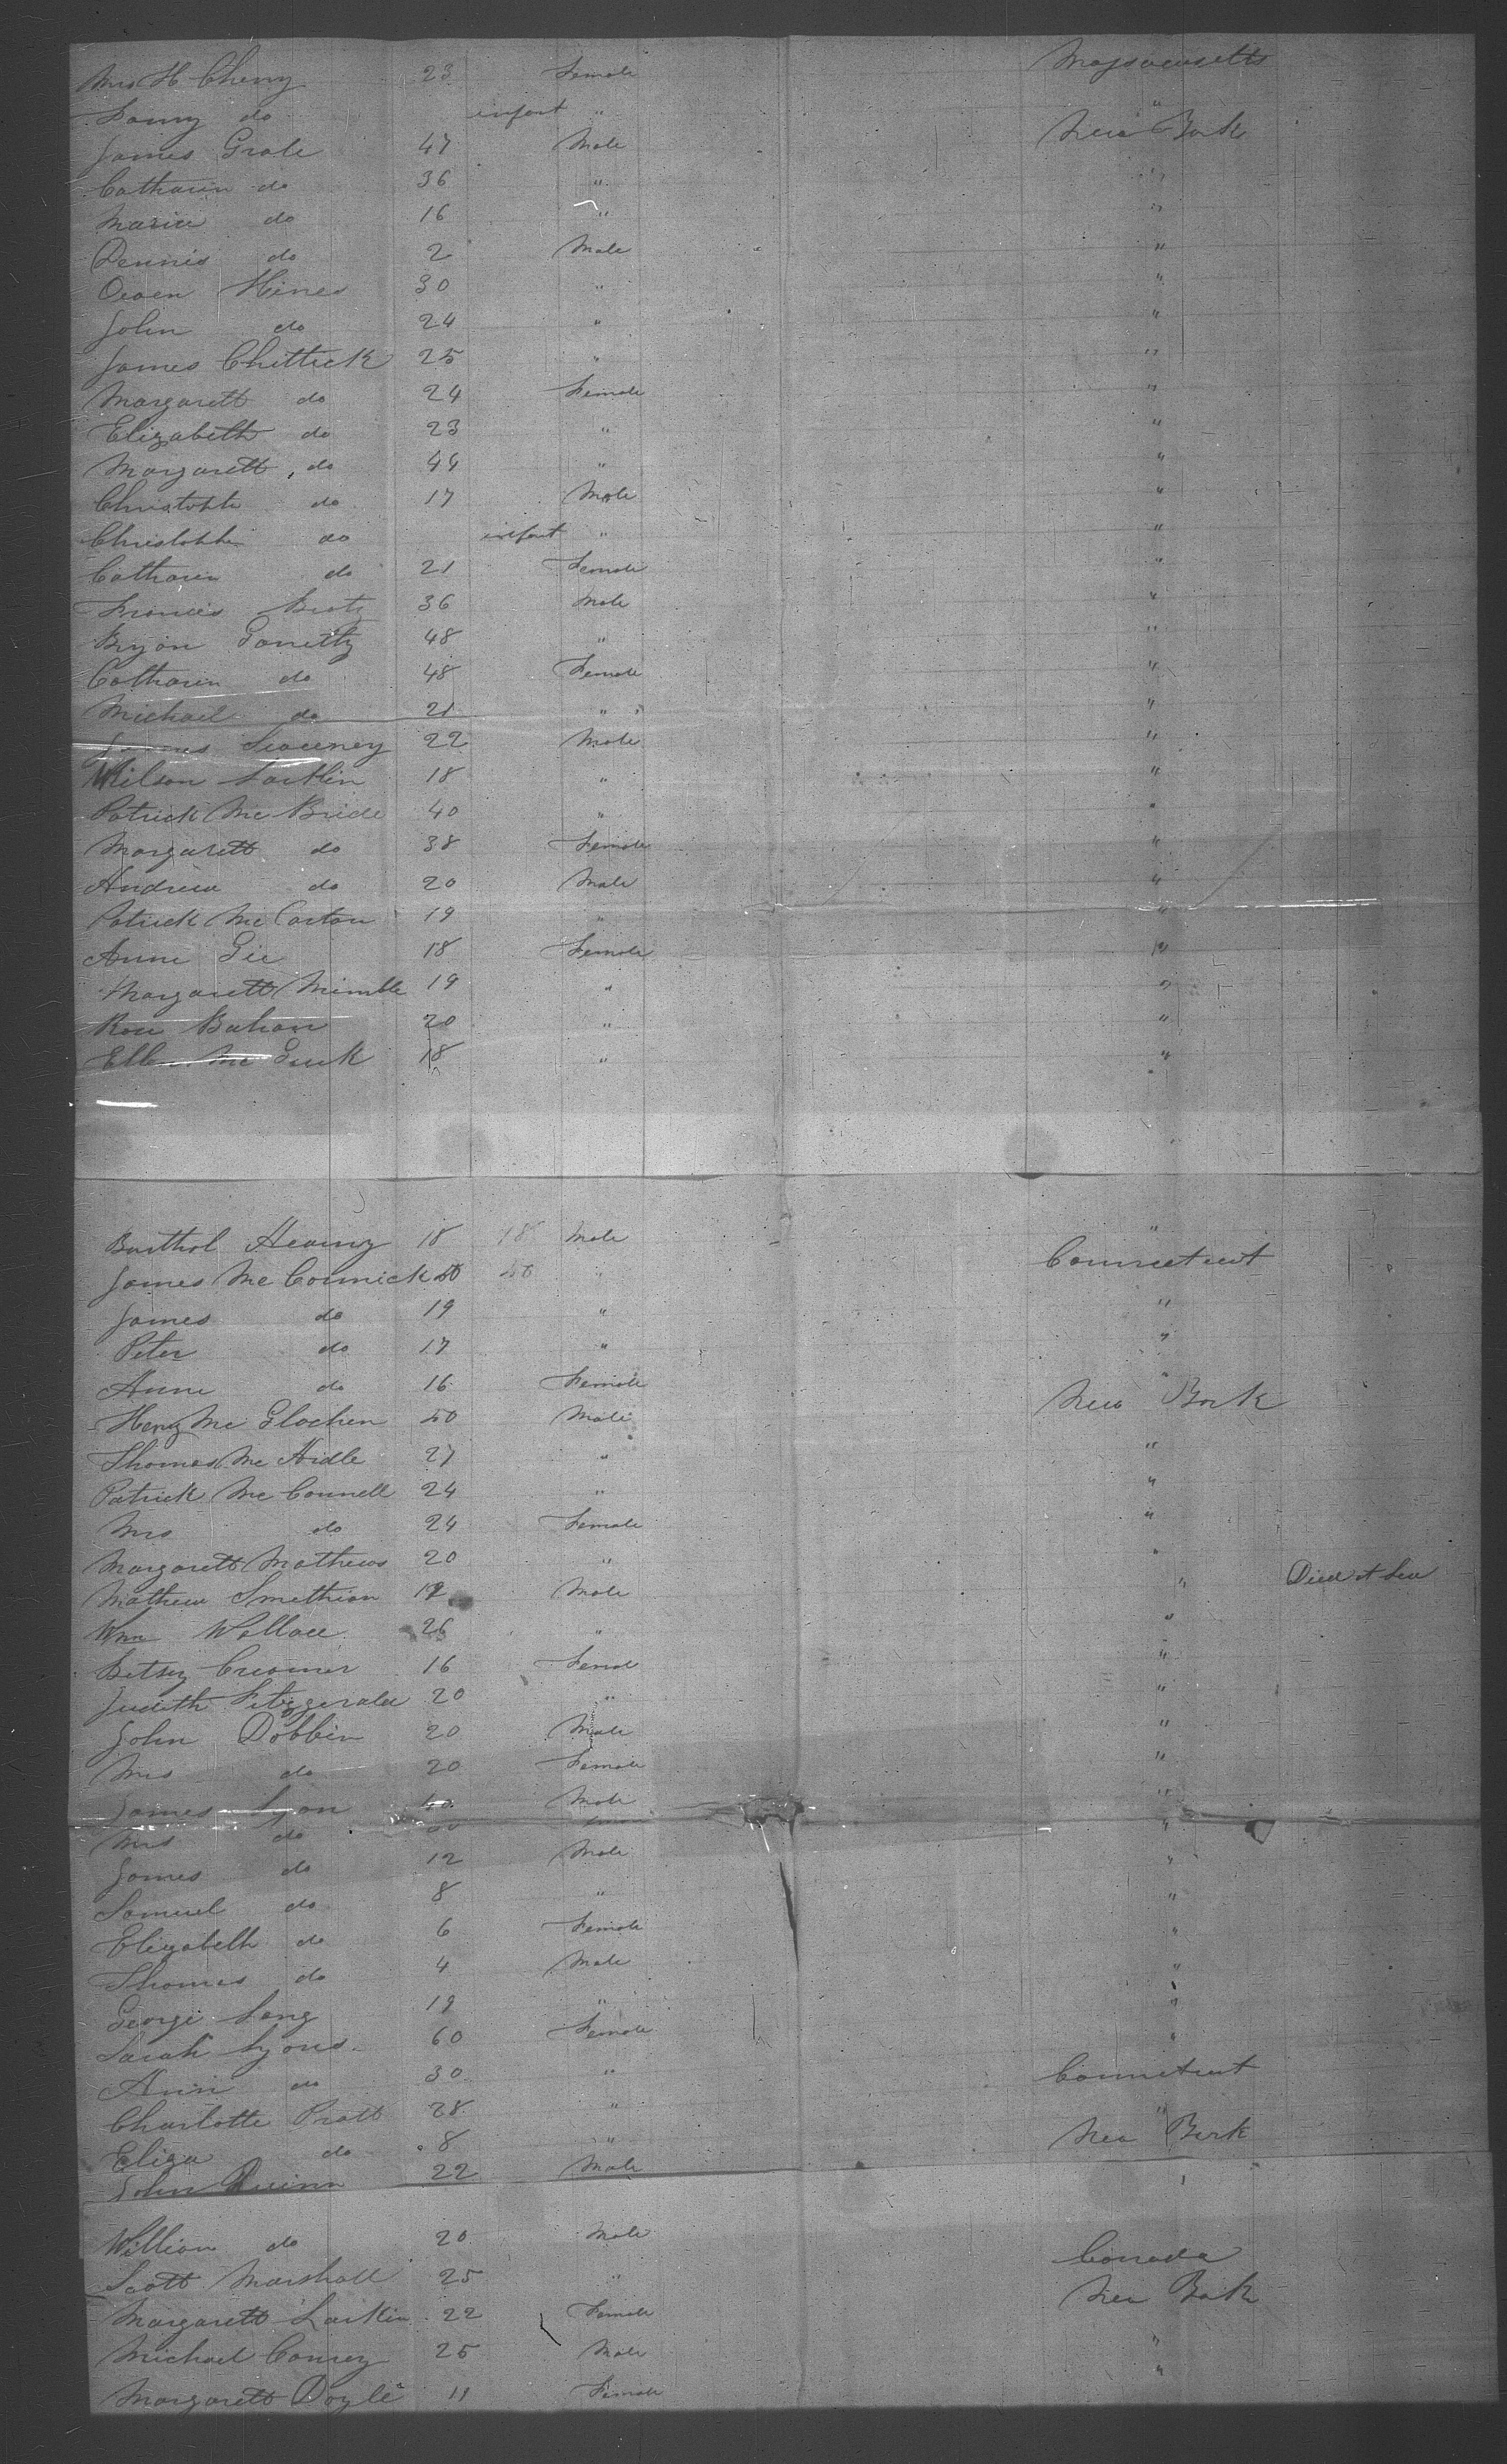 Mrs H Cherry 23 Female Massacusetts
Fanny do infant " "
James Grale 47 Male New York
Catharin do 36 " "
Maria do 16 " "
Dennis do 2 Male "
Owen Hines 30 " "
John do 24 " "
James Chittick 25 " "
Margarett do 24 Female "
Elizabeth do 23 " "
Margarett do 44 " "
Christophe do 17 Male "
Christophe do infant " "
Catharin do 21 Female "
Frances 36 Male "
Bryan Garretty 48 " "
Catharin do 48 Female "
Michael do 21 " "
James Sweeney 22 Male "
Wilson Larkin 18 " "
Patrick Mc Bride 40 " "
Margarett do 38 Female "
Andrew do 20 Male "
Patrick Mc Carton 19 " "
Anne Gie 18 Female "
Margarett Mimble 19 " "
Rose Bahan 20 " "
Ellen Mc Gurk 18 " "
Barthol Heany 18 18 Male "
James Mc Cormick 50 50 " Connecticut
James do 19 " "
Peter do 17 " "
Anne do 16 Female "
Henry Mc Glochen 50 Male New York
Thomas Mc Ardle 27 " "
Patrick Mc Connell 24 " "
Mrs do 24 Female "
Margarett Mathews 20 " "
Mathew Smethian 12 Male " Died at Sea
Wm Wallace 26 " "
Betsy Creamer 16 Femal "
Judith Fitzgerald 20 " "
John Dobbin 20 Male "
Mrs do 20 Female "
James Lyon 40 Male "
Mrs do "
James do 12 Male "
Samuel do 8 " "
Elizabeth do 6 Female "
Thomas do 4 Male "
George Long 19 " "
Sarah Lyons 60 Female "
Ann do 30 " Connetcut
Charlotte Pratt 28 " "
Eliza do 8 " New York
John Quinn 22 Male "
William do 20 Male
Scott Marshall 25 " Canada
Margarett Larkin 22 Female New York
Michael Conrey 25 Male "
Margarett Doyle 11 Female "